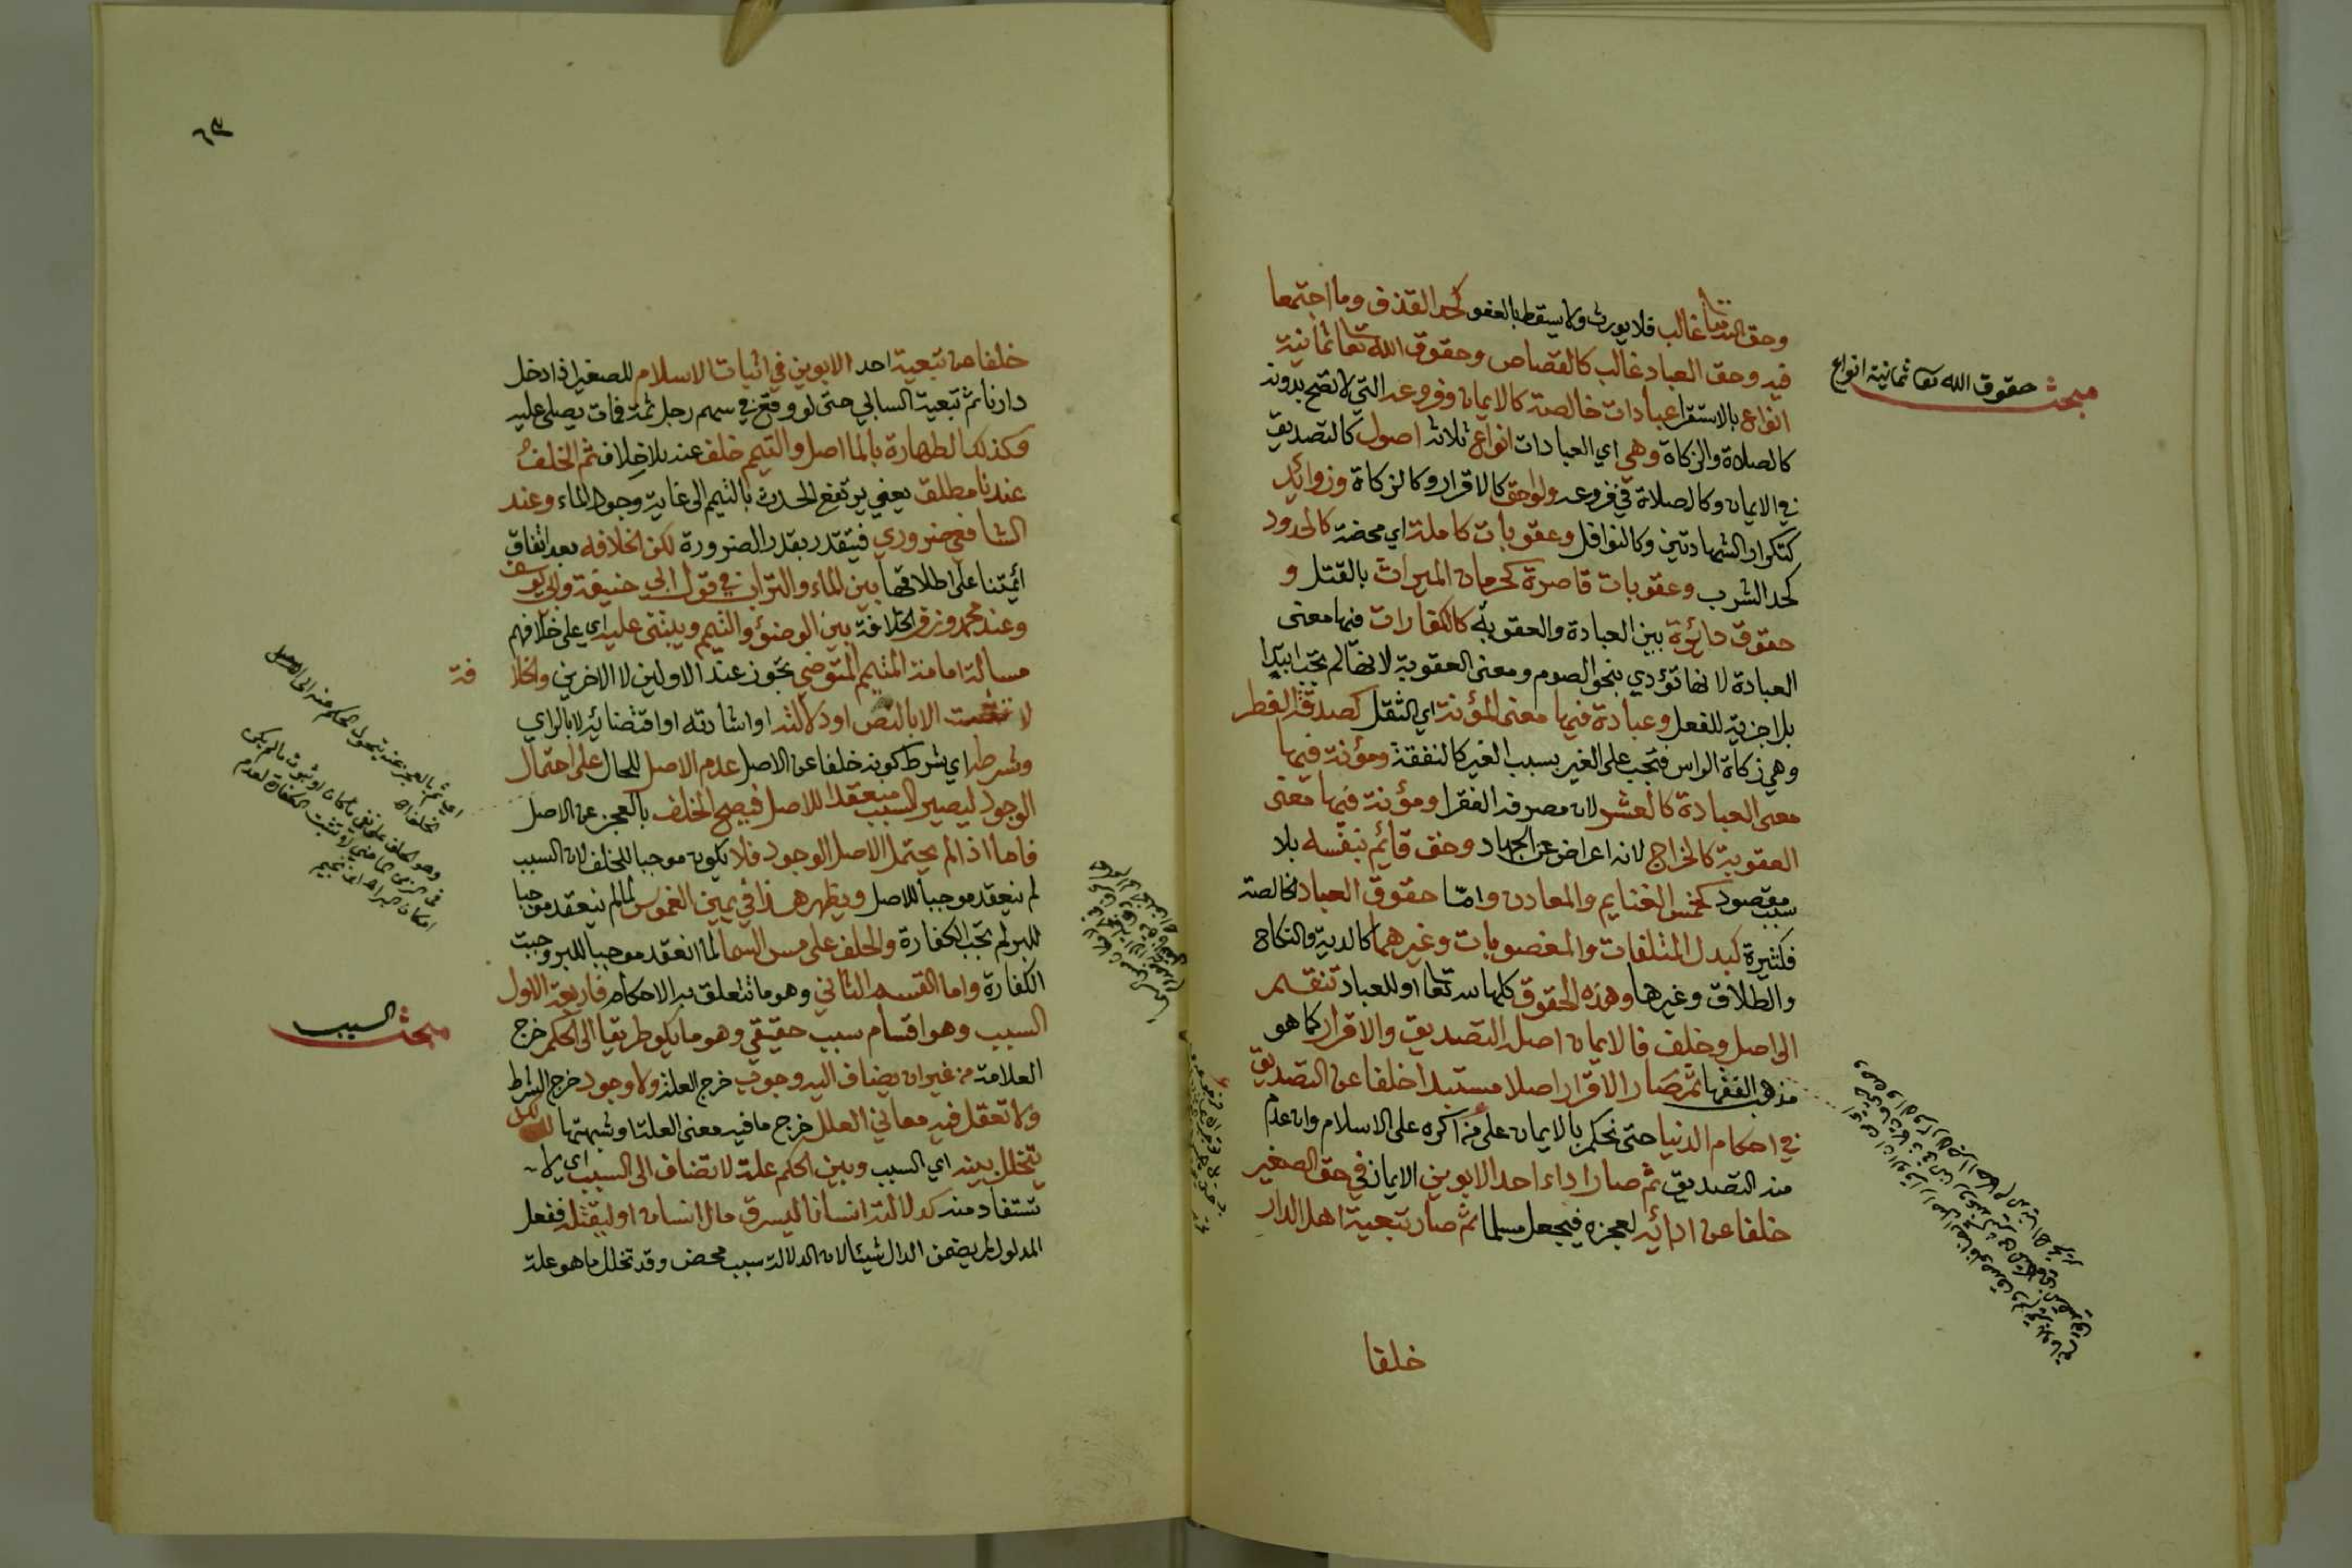 وحق الله تعا غالب فلا يورث ولا يسقط بالعفو كحد القذف وما اجتمعا
فيه وحق العباد غالب كالقصاص وحقوق الله تعا ثمانية
انواع بالاستقرا عبادات خالصة كالايمان وفروعه التي لا تصح بدونه
كالصلاة والزكاة وهي اي العبادات انواع ثلاثة اصول كالتصديق
في الايمان وكالصلاة في فروعه ولواحق كالاقرار وكالزكاة وزوائد
كتكرار الشهادتين وكالنوافل وعقوبات كاملة اي محضة كالحدود
كحد الشرب وعقوبات قاصرة كحرمان الميراث بالقتل و
حقوق دائرة بين العبادة والعقوبة كالكفارات فيها معنى
العبادة لانها تؤدي بنحو الصوم ومعنى العقوبة لانها لم تجب ابتدا
بل اجزية للفعل وعبادة فيها معنى المؤنة اي الثقل كصدقة الفطر
وهي زكاة الراس فتجب على الغير بسبب الغير كالنفقة ومؤنة فيها
معنى العبادة كالعشر لان مصرفه الفقرا ومؤنة فيها معنى
العقوبة كالخراج لانه اعراض عن الجهاد وحق قائم بنفسه بلا
سبب مقصود كخمس الغنايم والمعادن واما حقوق العباد الخالصة
فكثيرة كبدل المتلفات والمغصوبات وغيرهما كالدية والنكاح
والطلاق وغيرها وهذه الحقوق كلها لله تعا او للعباد تنقسم
الى اصل وخلف فالايمان اصله التصديق والاقرار كما هو
مذهب الفقها ثم صار الاقرار اصلا مستبدا خلفا عن التصديق
في احكام الدنيا حتى نحكم بالايمان على من اكره على الاسلام وان عدم
منه التصديق ثم صار اداء احد الابوين الايمان في حق الصغير
خلفا عن ادائه لعجزه فيجعل مسلما ثم صار تبعية اهل الدار
خلفا
مبحث حقوق الله تعا ثمانية انواع
خلفا عن تبعية احد الابوين في اثبات الاسلام للصغير اذا دخل
دارنا ثم تبعية السابي حتى لو وقع في سهم رجل ثمة فمات يصلى عليه
وكذلك الطهارة بالما اصل والتيمم خلف عنه بلا خلاف ثم الخلف
عندنا مطلق يعني يرتفع الحدث بالتيمم الى غاية وجود الماء وعند
الشافعي ضروري فيتقدر بقدر الضرورة لكن الخلافة بعد اتفاق
ائمتنا على اطلاقها بين الماء والتراب في قول ابي حنيفة وابي يوسف
وعند محمد وزفر الخلافة بين الوضوء والتيمم ويبتنى عليه اي على خلافهم
مسالة امامة المتيمم المتوضي تجوز عند الاولين لا الاخرين والخلا فة
لا تثبت الا بالنص او دلالته او اشارته او اقتضائه لا بالراي
وشرطه اي شرط كونه خلفا عن الاصل عدم الاصل للحال على احتمال
الوجود ليصير السبب منعقدا للاصل فيصح الخلف بالعجز عن الاصل
فاما اذا لم يحتمل الاصل الوجود فلا يكون موجبا للخلف لان السبب
لم ينعقد موجبا للاصل ويظهر هذا في يمين الغموس لما لم ينعقد موجبا
للبر لم تجب الكفارة والحلف على مس السما لما انعقد موجبا للبر وجبت
الكفارة واما القسم الثاني وهو ما تتعلق به الاحكام فاربعة الاول
السبب وهو اقسام سبب حقيقي وهو ما يكون طريقا الى الحكم خرج
العلامة من غير ان يضاف اليه وجوب خرج العلة ولا وجود خرج الشرط
ولا تعقل فيه معاني العلل خرج ما فيه معنى العلة او شبهتها لكن
يتخلل بينه اي السبب وبين الحكم علة لا تضاف الى السبب اي لا
تستفاد منه كدلالته انسانا ليسرق مال انسان او ليقتله ففعل
المدلول لم يضمن الدال شيئا لان الدلالة سبب محض وقد تخلل ما هو علة
مبحث السبب
اي ثم بالعجز عنه يتحول الحكم عنه الى